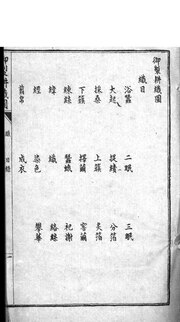 御製耕織圖
織目
浴蠶 二眠 三眠
大起 捉績 分箔
採桑 上簇 炙箔
下簇 擇繭 窖繭
練絲 蠶蛾 祀謝
緯 織 絡絲
經 染色 攀華
翦帛 成衣
御製耕織圖 織 目錄